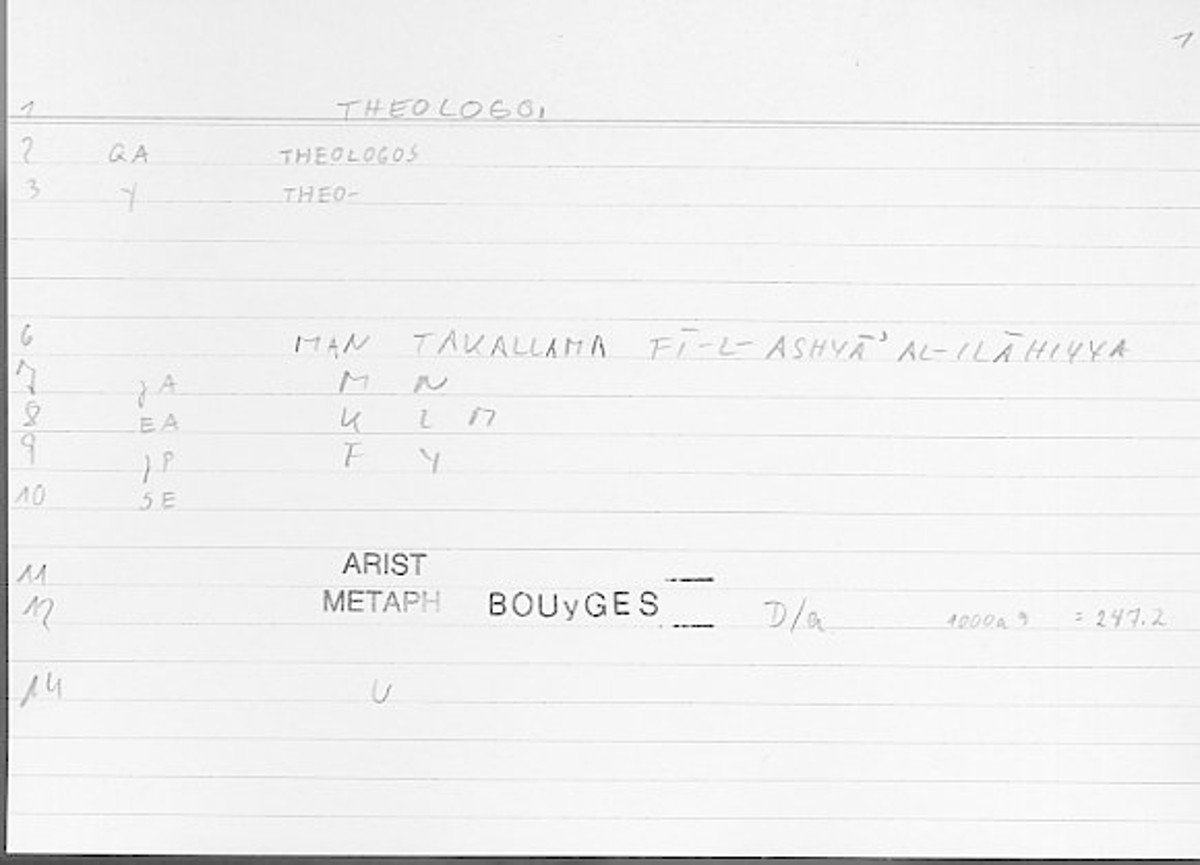 1
1 THEOLOGOI
2 QA THEOLOGOS
3 Y THEO-
6 MAN TAKALLAMA FĪ-L-ASHYĀʾ AL-ILĀHIYYA
7 JA M N
8 EA K L M
9 JP F Y
10 SE
11 ARIST
12 METAPH BOUyGES D/a 1000a9 = 247.2
14 U